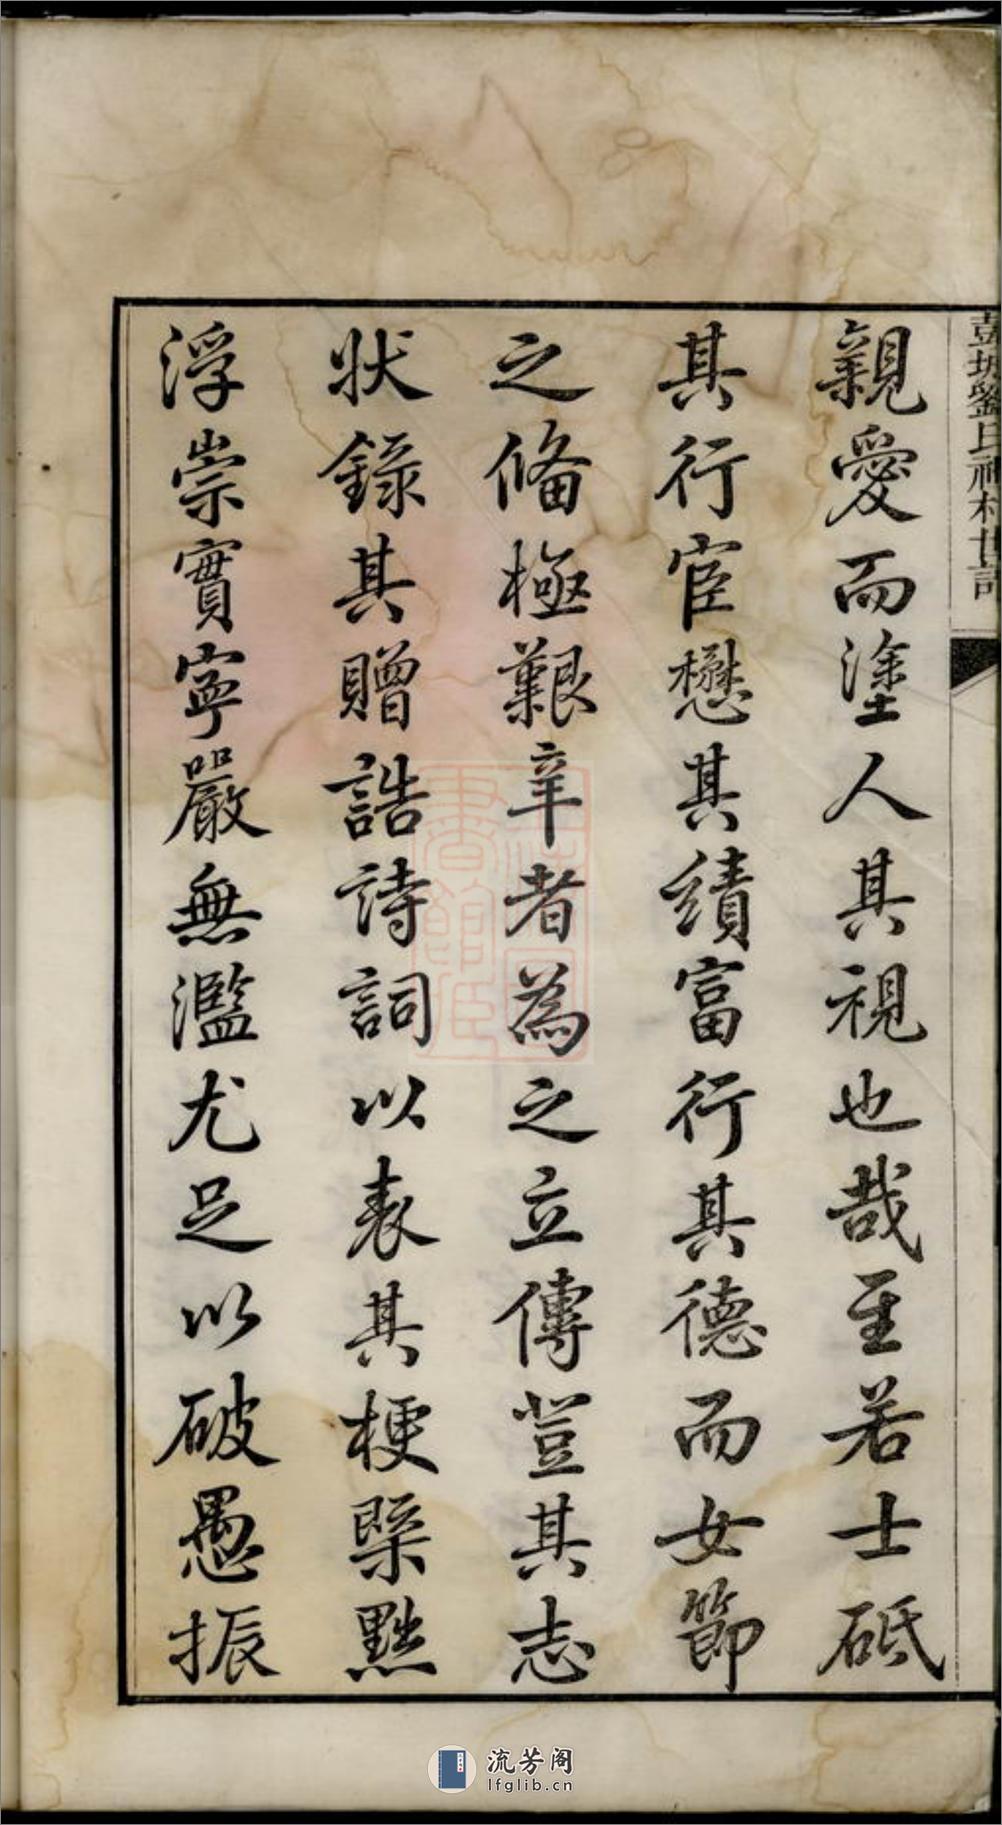 親愛而塗人其視也哉至若士砥
其行宦懋其績富行其德而女節
之脩極艱辛者為之立傳豈其志
狀錄其贈誥詩詞以表其梗槩黜
浮崇實寧嚴無濫尤足以破愚振
流芳阁
lfglib.cn